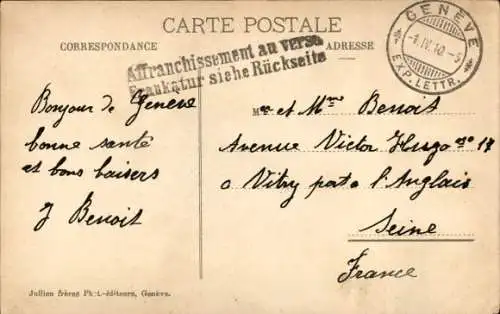 CARTE POSTALE
CORRESPONDANCE
ADRESSE
Affranchissement au verso
Frankatur siehe Rückseite
GENÈVE
-1.IV.10.-5
EXP. LETTR.
Bonjour de Genève
bonne santé
et bons baisers
J Benoit
Mr et Mme Benoit
Avenue Victor Hugo no 17
a Vitry port a l'Anglais
Seine
France
Jullien frères Phot.-éditeurs, Genève.